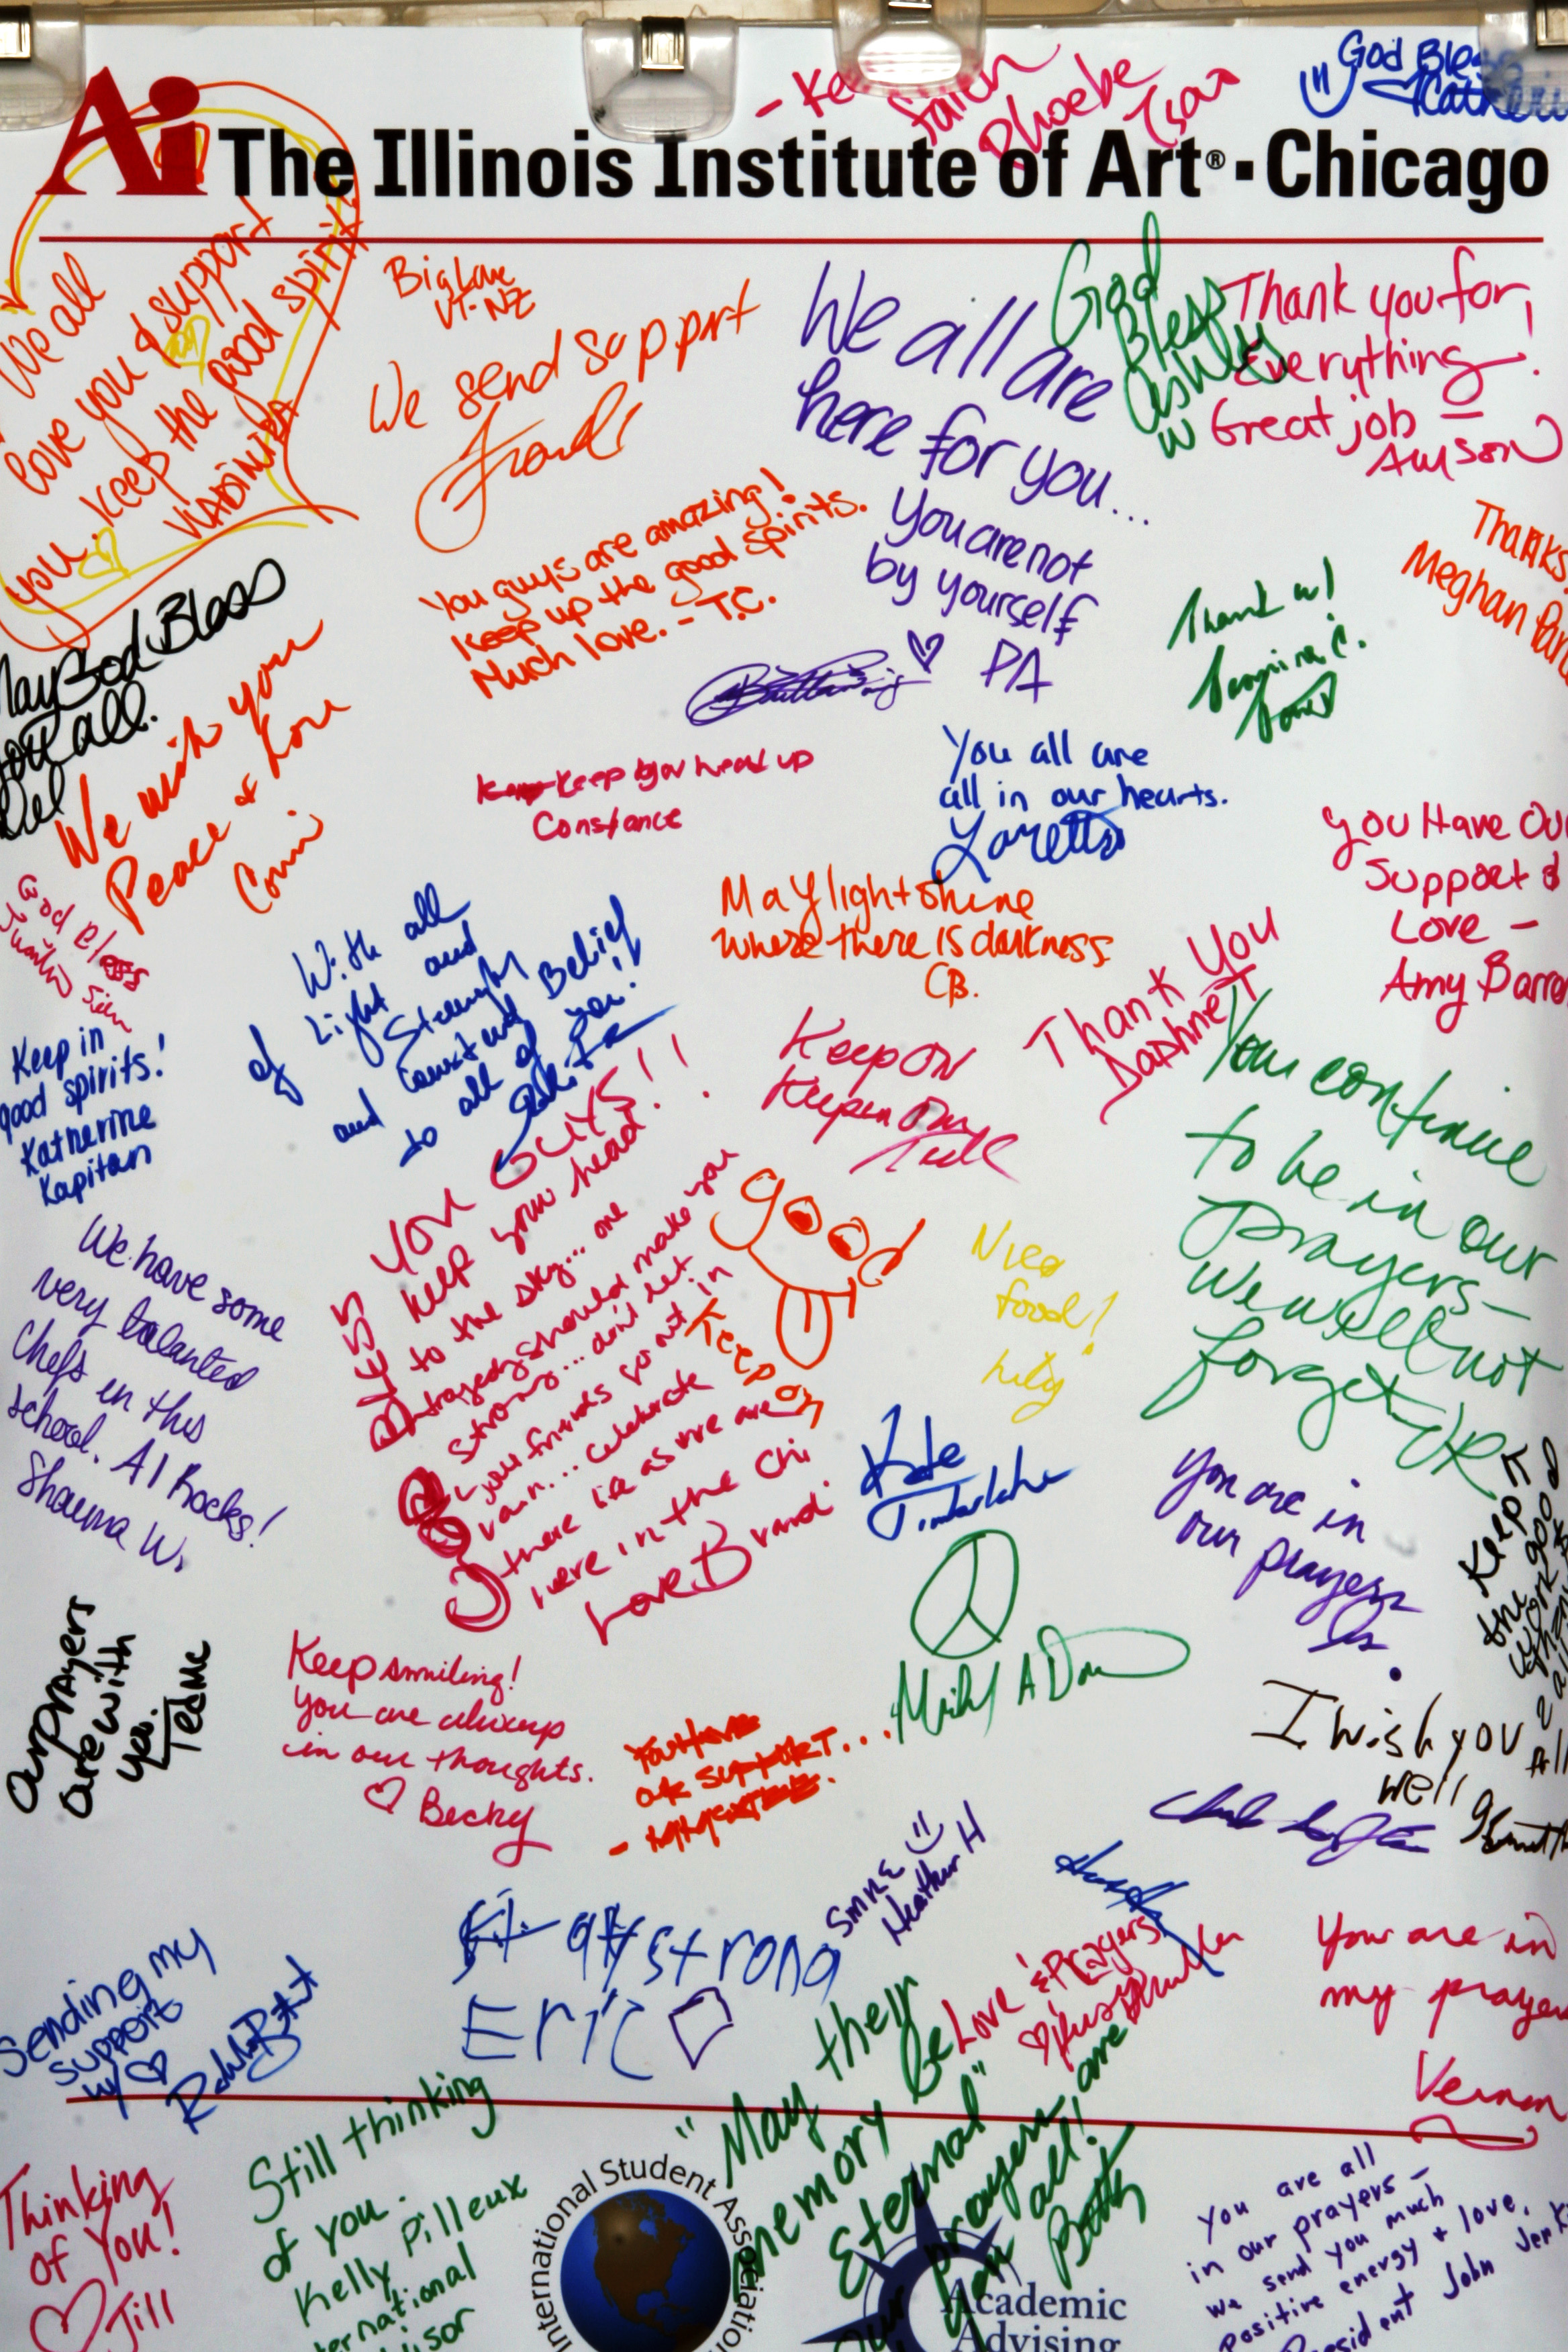 Faith
Phoebe
Tsai
God Bless
Ai The Illinois Institute of Art® ▪ Chicago
We all
love you & support
you. keep the good spirit
Big Love
VT-NZ
We send support
We all are
here for you...
You are not
by yourself
PA
God
Bless
Ashley
W
Thank you for
Everything!
Great job –
Thanks
Meghan
You guys are amazing!
Keep up the good spirits.
Much love. - T.C.
May God Bless
you all.
We wish you
Peace & Love
Keep your head up
Constance
You all are
all in our hearts.
Loretta
You Have Our
Support &
Love –
Amy
God Bless
May light shine
where there is darkness
CB.
With all
of Light and
Strength
and Belief
to all of you!
Thank You
Daphne T
Keep in
good spirits!
Katherine
Kapitan
Keep ON
Keepin On
You continue
to be in our
prayers–
We will not
forget–
We have some
very talanted
Chefs in this
School. AI Rocks!
Shauna W.
BLESS YOU GUYS!!
keep your head
to the sky... one
tragedy should make you
strong... don't let
your friends go out in
vain... celebrate
there life as we are
here in the Chi
Love Brandi
good
Keep on
Nice
food!
Lily
Kate
Timberlake
You are in
our prayers
Keep
the good
work
Our prayers
are with
you.
Keep smiling!
you are always
in our thoughts.
♡ Becky
You have
our support...
I wish you all
well
Smile
Heather H
Stay strong
Eric
Love & Prayers!
You are in
my prayers
Vernon
Sending my
support
w/ ♡
"May their
memory be
Eternal"
Our prayers are
all!
Betty
Thinking
of You!
♡ Jill
Still thinking
of you.
Kelly Pilleux
International Student Association
Academic
Advising
You are all
in our prayers –
we send you much
positive energy + love.
President John